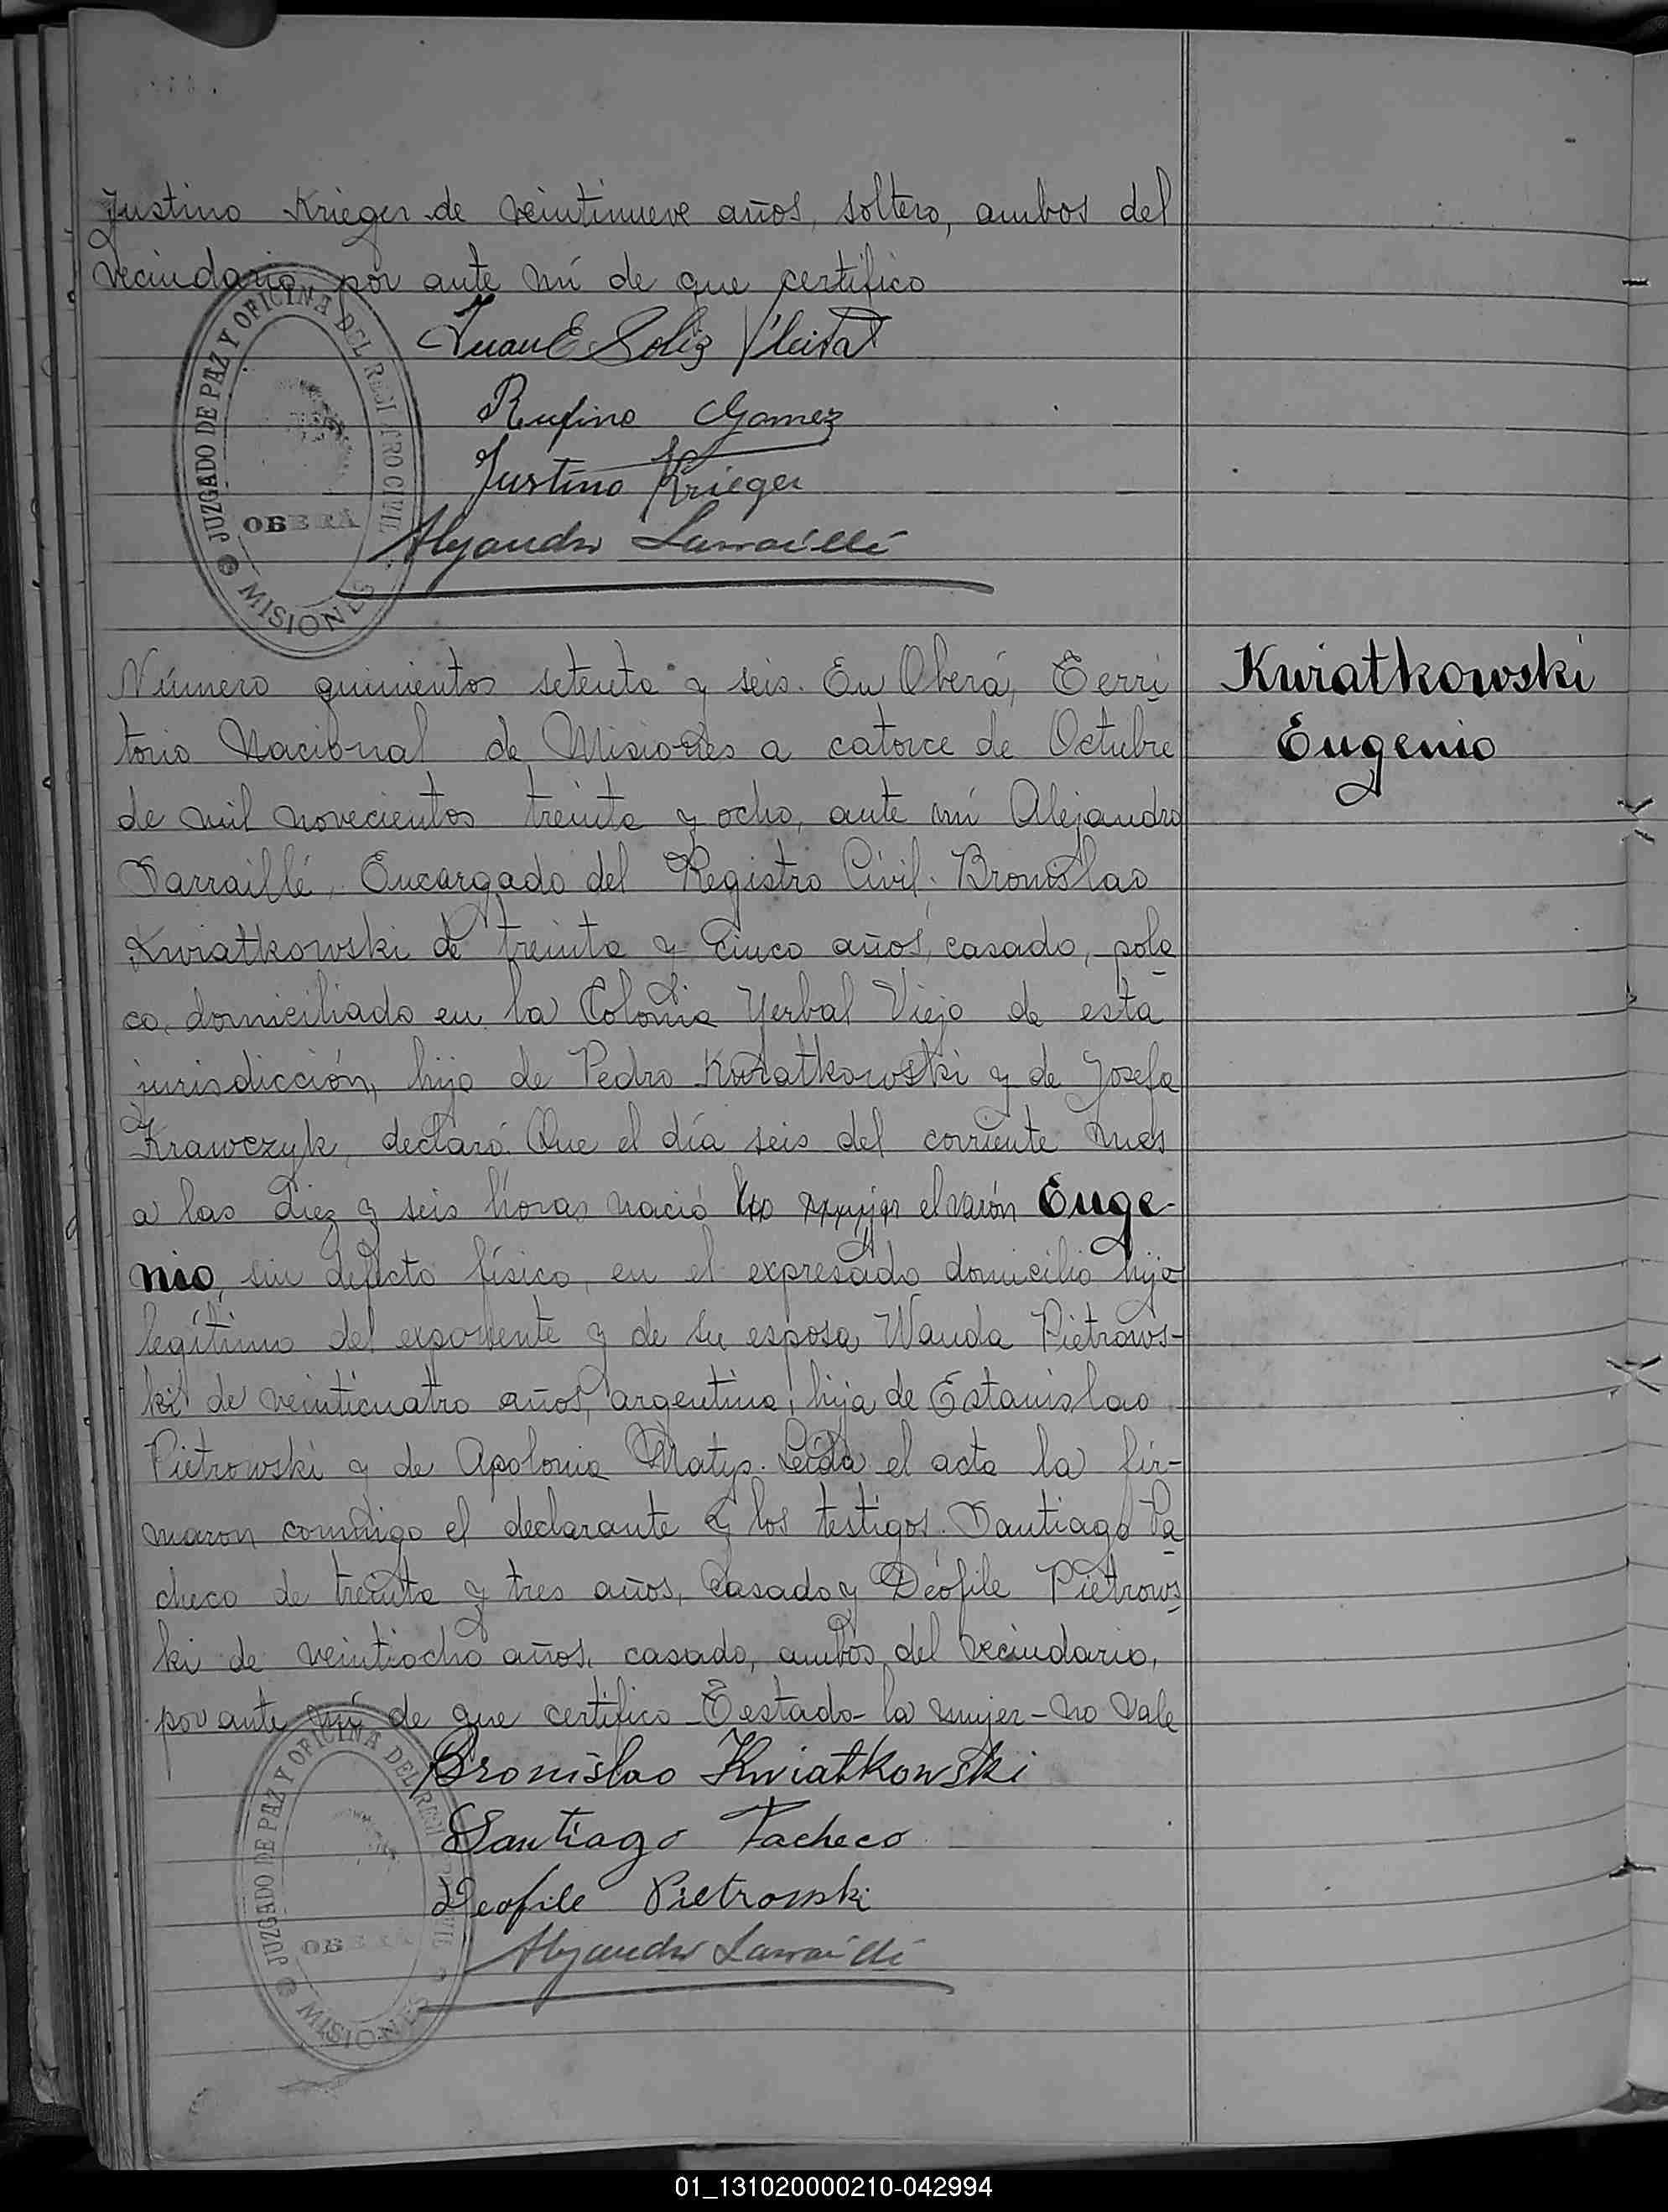 Justino Krieger de veintinueve años, soltero, ambos del
vecindario por ante mí de que certifico
Juan E Soliz
Rufino Gomez
Justino Krieger
Alejandro Larraillé
JUZGADO DE PAZ Y OFICINA DEL REGISTRO CIVIL
OBERÁ
MISIONES
Número quinientos setenta y seis. En Oberá, Terri
torio Nacional de Misiones a catorce de Octubre
de mil novecientos treinta y ocho, ante mí Alejandro
Larraillé, Encargado del Registro Civil. Bronislao
Kwiatkowski de treinta y cinco años, casado, pola
co, domiciliado en la Colonia Yerbal Viejo de esta
jurisdicción, hijo de Pedro Kwiatkowski y de Josefa
Krawczyk, declaró: Que el día seis del corriente mes
a las diez y seis horas nació la mujer el varón Euge-
nio, sin defecto físico, en el expresado domicilio hijo
legítimo del exponente y de su esposa Wanda Pietrows-
ki de veinticuatro años, argentina, hija de Estanislao
Pietrowski y de Apolonia Matys. Leída el acta la fir-
maron conmigo el declarante y los testigos. Santiago Pa
checo de treinta y tres años, casado y Deófile Pietrows
ki de veintiocho años, casado, ambos del vecindario,
por ante mí de que certifico - Testado - la mujer - no vale
Bronislao Kwiatkowski
Santiago Pacheco
Deofile Pietrowski
Alejandro Larraillé
JUZGADO DE PAZ Y OFICINA DEL REGISTRO CIVIL
OBERÁ
MISIONES
Kwiatkowski
Eugenio
01_131020000210-042994